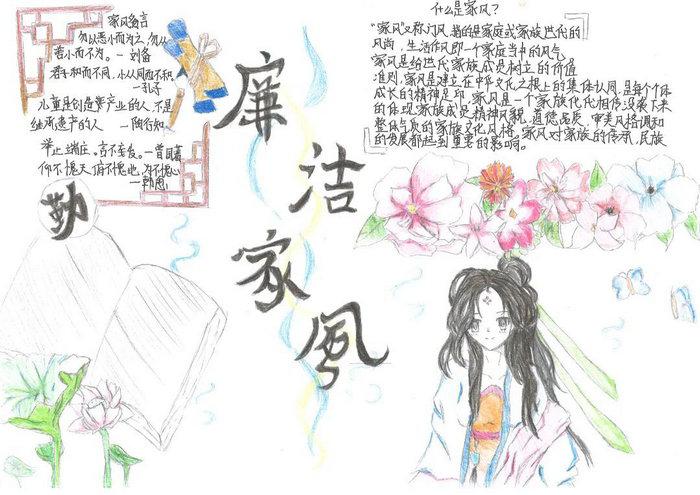 家风名言
勿以恶小而为之,勿以
善小而不为。—刘备
君子和而不同,小人同而不和
—孔子
儿童是创造产业的人,不是
继承遗产的人 —陶行知
举止端庄。言不妄发。
仰不愧天 俯不愧地,内不愧心
勤
廉洁家风
什么是家风?
"家风"又称门风,指的是家庭或家族世代的
风尚,生活作风即一个家庭当中的风气
家风是给世代家族成员树立的价值
准则,家风是建立在中华文化之根上的集体认同,是每个个体
成长的精神足印,家风是一个家族代代相传沿袭下来
的体现家族成员精神风貌、道德品质、审美风格和
整体气质的家族文化风格。家风对家族的传承,民族
的发展都起到重要的影响。